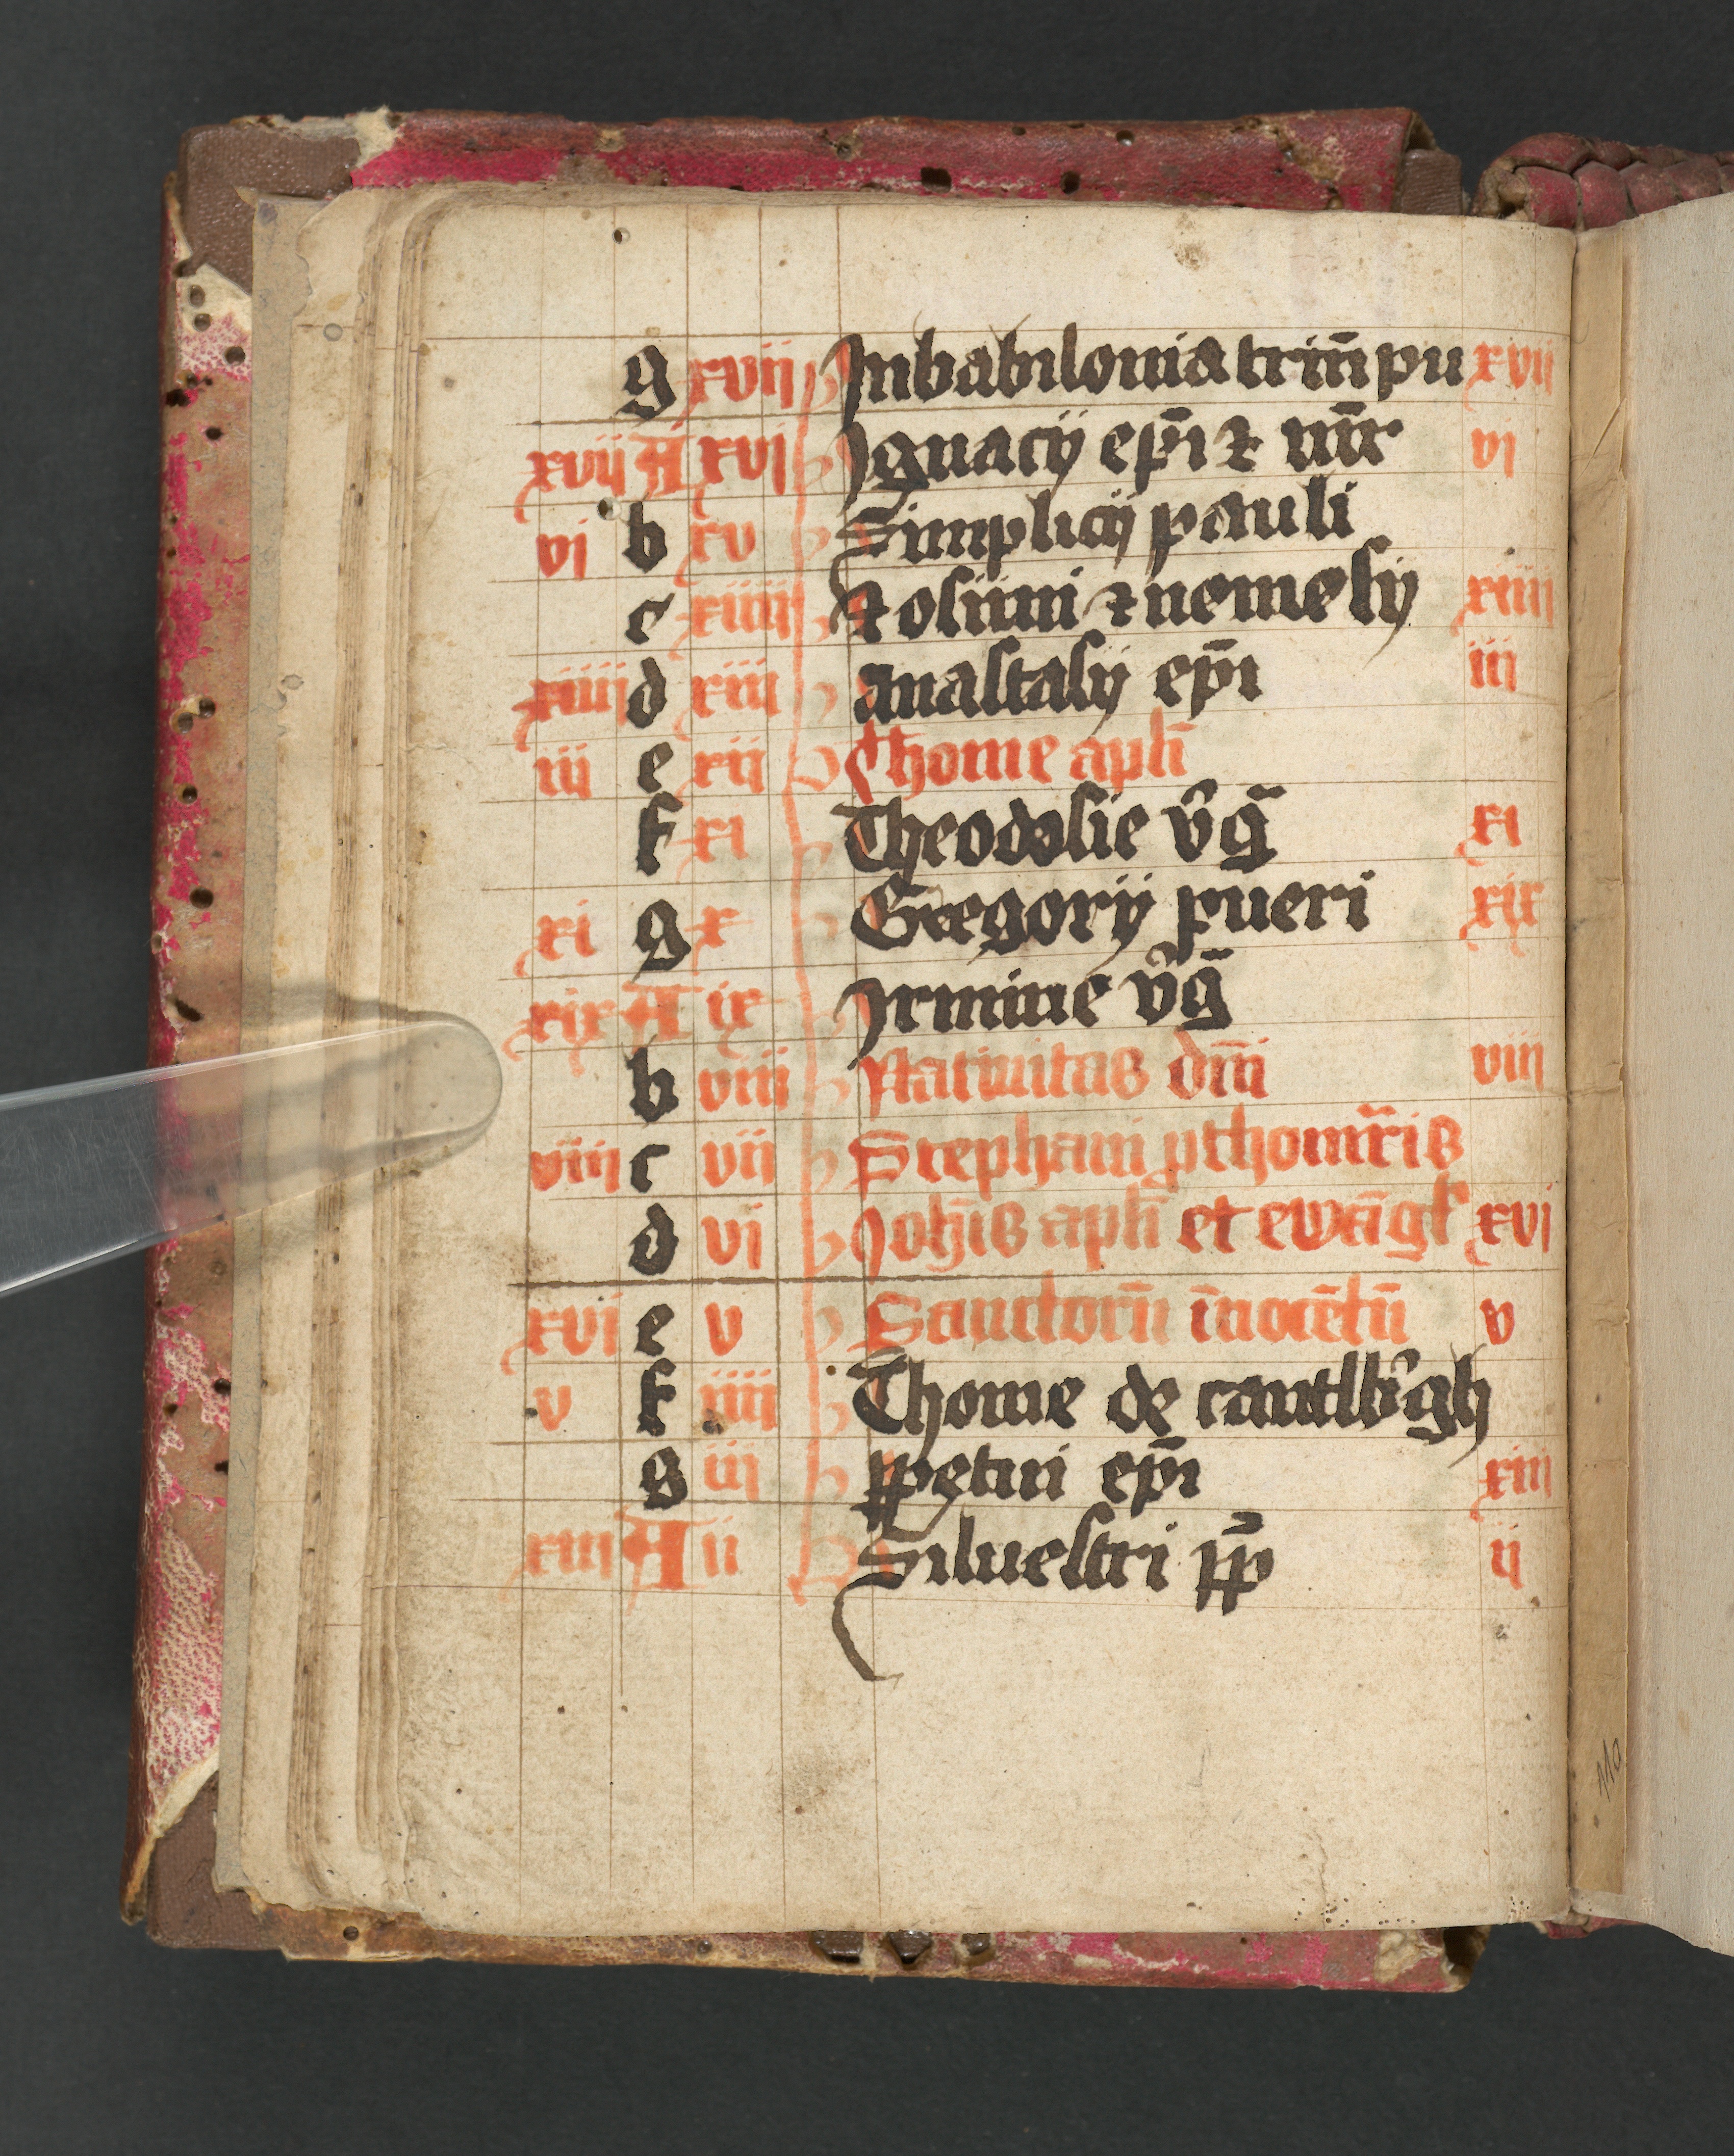 g xvii b Inbabilonia triū pu xvii
xvij A xvi b Ignacij ep̄i ⁊ mr̄ vi
vi b xv b Simplicij pauli
c xiiii b Zosimi ⁊ nemesij xiiii
xiiii d xiii b anastasij ep̄i iii
iii e xii b Thome apl̄i
f xi b Theodosie v̄ḡ xi
xi g x b Gregorij pueri xix
xix A ix b Irmine v̄ḡ
b viii b Natiuitas dn̄i viii
viiii c vii b Stephani ꝓthomr̄is
d vi b Joh̄is apl̄i et ewāgl̄ xvi
xvi e v b Sanctorū īnocētū v
v f iiii b Thome de cantlb̄gh
g iii b ꝑpetui ep̄i xiii
xiii A ii b Siluestri pp̄ ij